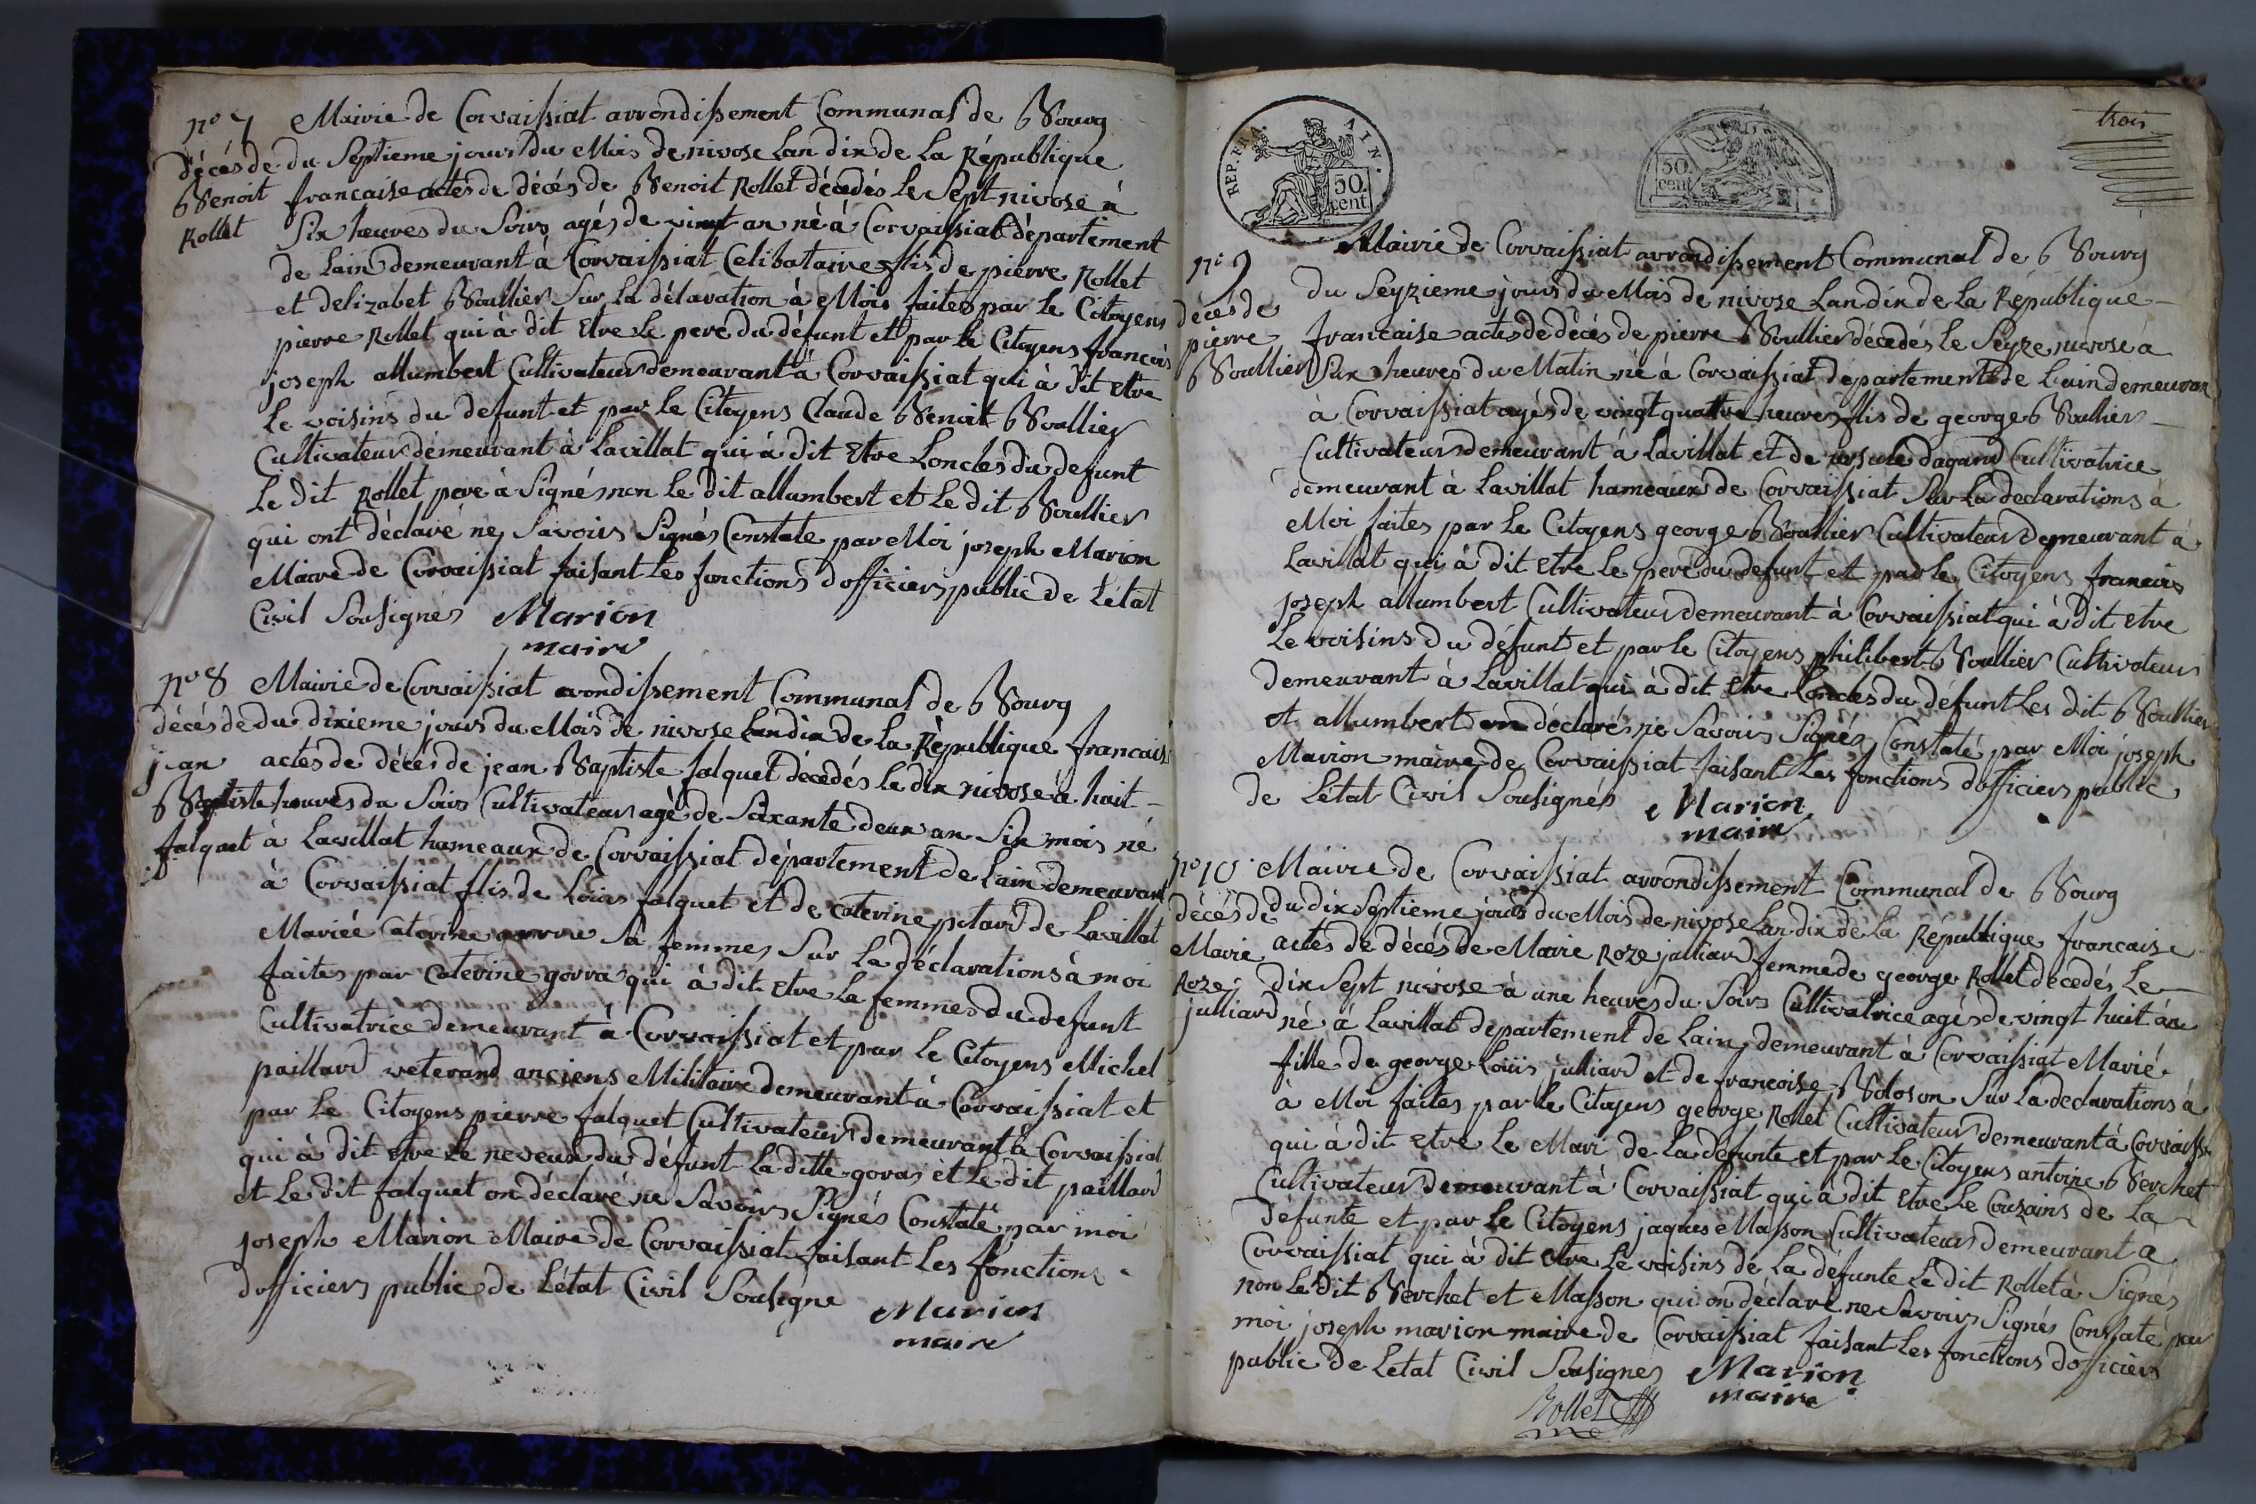 nº 7 Mairie de Corvaissiat arrondissement Communal de Bourg
décés de du Septieme jours du Mois de nivose Lan dix de La République
Benoit francaise actes de décés de Benoit Rollet décedés le Sept nivose à
Rollet Six heuvres du Soirs agés de vingt an né à Corvaissiat département
de Lain demeurant à Corvaissiat Celibataire flis de pierre Rollet
et delizabet Boullier Sur La délaration à Moi faites par le Citoyens
pierre Rollet qui à dit Etre Le pere du défunt et par le Citoyens francois
joseph allumbert Cultivateur demeurant à Corvaissiat qui à dit Etre
Le voisins du defunt et par le Citoyens Claude Benoit Boullier
Cultivateur demeurant à Lavillat qui à dit Etre Loncles du defunt
Le dit Rollet pere à Signés non Le dit allumbert et Le dit Boullier
qui ont déclaré ne Savoirs Signés Constate par Moi joseph Marion
Maire de Corvaissiat faisant Les fonctions dofficiers public de Létat
Civil Sousignés Marion
maire
nº 8 Mairie de Corvaissiat arondissement Communal de Bourg
décés de du dixieme jours du Mois de nivose Lan dix de La République francais
jean actes de décés de jean Baptiste falquet décedés le dix nivose à huit
Baptiste heuvres du Soirs Cultivateur agé de Soixante deux an Six mois né
falquet à Lavillat hameaux de Corvaissiat département de Lain demeurant
à Corvaissiat flis de Loüis falquet et de Caterine pitard de Lavillat
Mariée Caterine gorra Sa femmes Sur La déclarations à moi
faites par Caterine gorra qui à dit Etre La femmes du defunt
Cultivatrice demeurant à Corvaissiat et par Le Citoyens Michel
paillard véterand anciens Militaire demeurant à Corvaissiat et
par Le Citoyens pierre falquet Cultivateur demeurant à Corvaissiat
qui à dit Etre Le neveux du défunt La ditte goras et Le dit paillard
et Le dit falquet on déclaré ne Savoirs Signés Constaté par moi
joseph Marion Maire de Corvaissiat faisant Les fonctions
dofficiers public de Létat Civil Sousigné Marion
maire
trois
REP. FRA. AIN. 50. cent
50. cent
Mairie de Corvaissiat arrondissement Communal de Bourg
nº 9 du Seyzieme jours du Mois de nivose Lan dix de La République
décés de
pierre francaise actes de décés de pierre Boullier décedés le Seyze nivose à
Boullier Six heures du Matin né à Corvaissiat departement de Lain demeuran
à Corvaissiat agés de vingt quattre heures flis de george Boullier
Cultivateur demeurant à Lavillat et de ursule dagand Cultivatrice
demeurant à Lavillat hameaux de Corvaissiat Sur La declarations à
Moi faites par Le Citoyens george Boullier Cultivateur Demeurant à
Lavillat qui à dit Etre Le pere du defunt et par le Citoyens francois
joseph allumbert Cultivateur demeurant à Corvaissiat qui à dit Etre
Le voisins du défunt et par le Citoyens philibert Boullier Cultivateur
demeurant à Lavillat qui à dit Etre Loncles du défunt Les dit Boullier
et allumbert on déclarés ne Savoirs Signés Constaté par Moi joseph
Marion maire de Corvaissiat faisant Les fonctions dofficiers public
de Létat Civil Sousignés Marion
maire
nº 10 Mairie de Corvaissiat arrondissement Communal de Bourg
décés de du dix Septieme jours du Mois de nivose Lan dix de La République francaise
Marie actes de décés de Marie Roze julliard femme de george Rollet décedés Le
Roze dix Sept nivose à une heures du Soirs Cultivatrice agés de vingt huit an
julliard né à Lavillat departement de Lain demeurant à Corvaissiat Marié
fille de george Loüis julliard et de francoise Boloson Sur La declarations à
à Moi faites par le Citoyens george Rollet Cultivateur demeurant à Corvaissi
qui à dit Etre Le Mari de La défunte et par Le Citoyens antoine Berchet
Cultivateur demeurant à Corvaissiat qui à dit Etre Le Couzains de La
défunte et par Le Citoyens jaques Masson Cultivateur demeurant à
Corvaissiat qui à dit Etre Le voisins de La défunte Le dit Rollet à Signés
non Le dit Berchet et Masson qui on déclaré ne Savoirs Signés Constaté par
moi joseph marion maire de Corvaissiat faisant Les fonctions dofficiers
public de Létat Civil Sousignes Marion
maire
Rollet